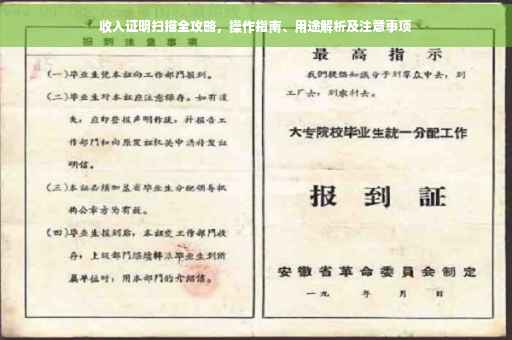 收入证明扫描全攻略，操作指南、用途解析及注意事项
报到注意事项
(一)毕业生凭本证向工作部门报到。
(二)毕业生对本证应注意保存。如有遗
失，应即登报声明作废，并报告工
作部门和向原发证机关申请补发证
明信。
(三)本证必须加盖省毕业生分配领导机
构公章方为有效。
(四)毕业生报到后，本证交工作部门收
存；上级部门继续转派毕业生到所
属单位时，用本部门的介绍信。
最高指示
我们提倡知识分子到群众中去，到
工厂去，到农村去。
大专院校毕业生统一分配工作
报到证
安徽省革命委员会制定
一九 年 月 日